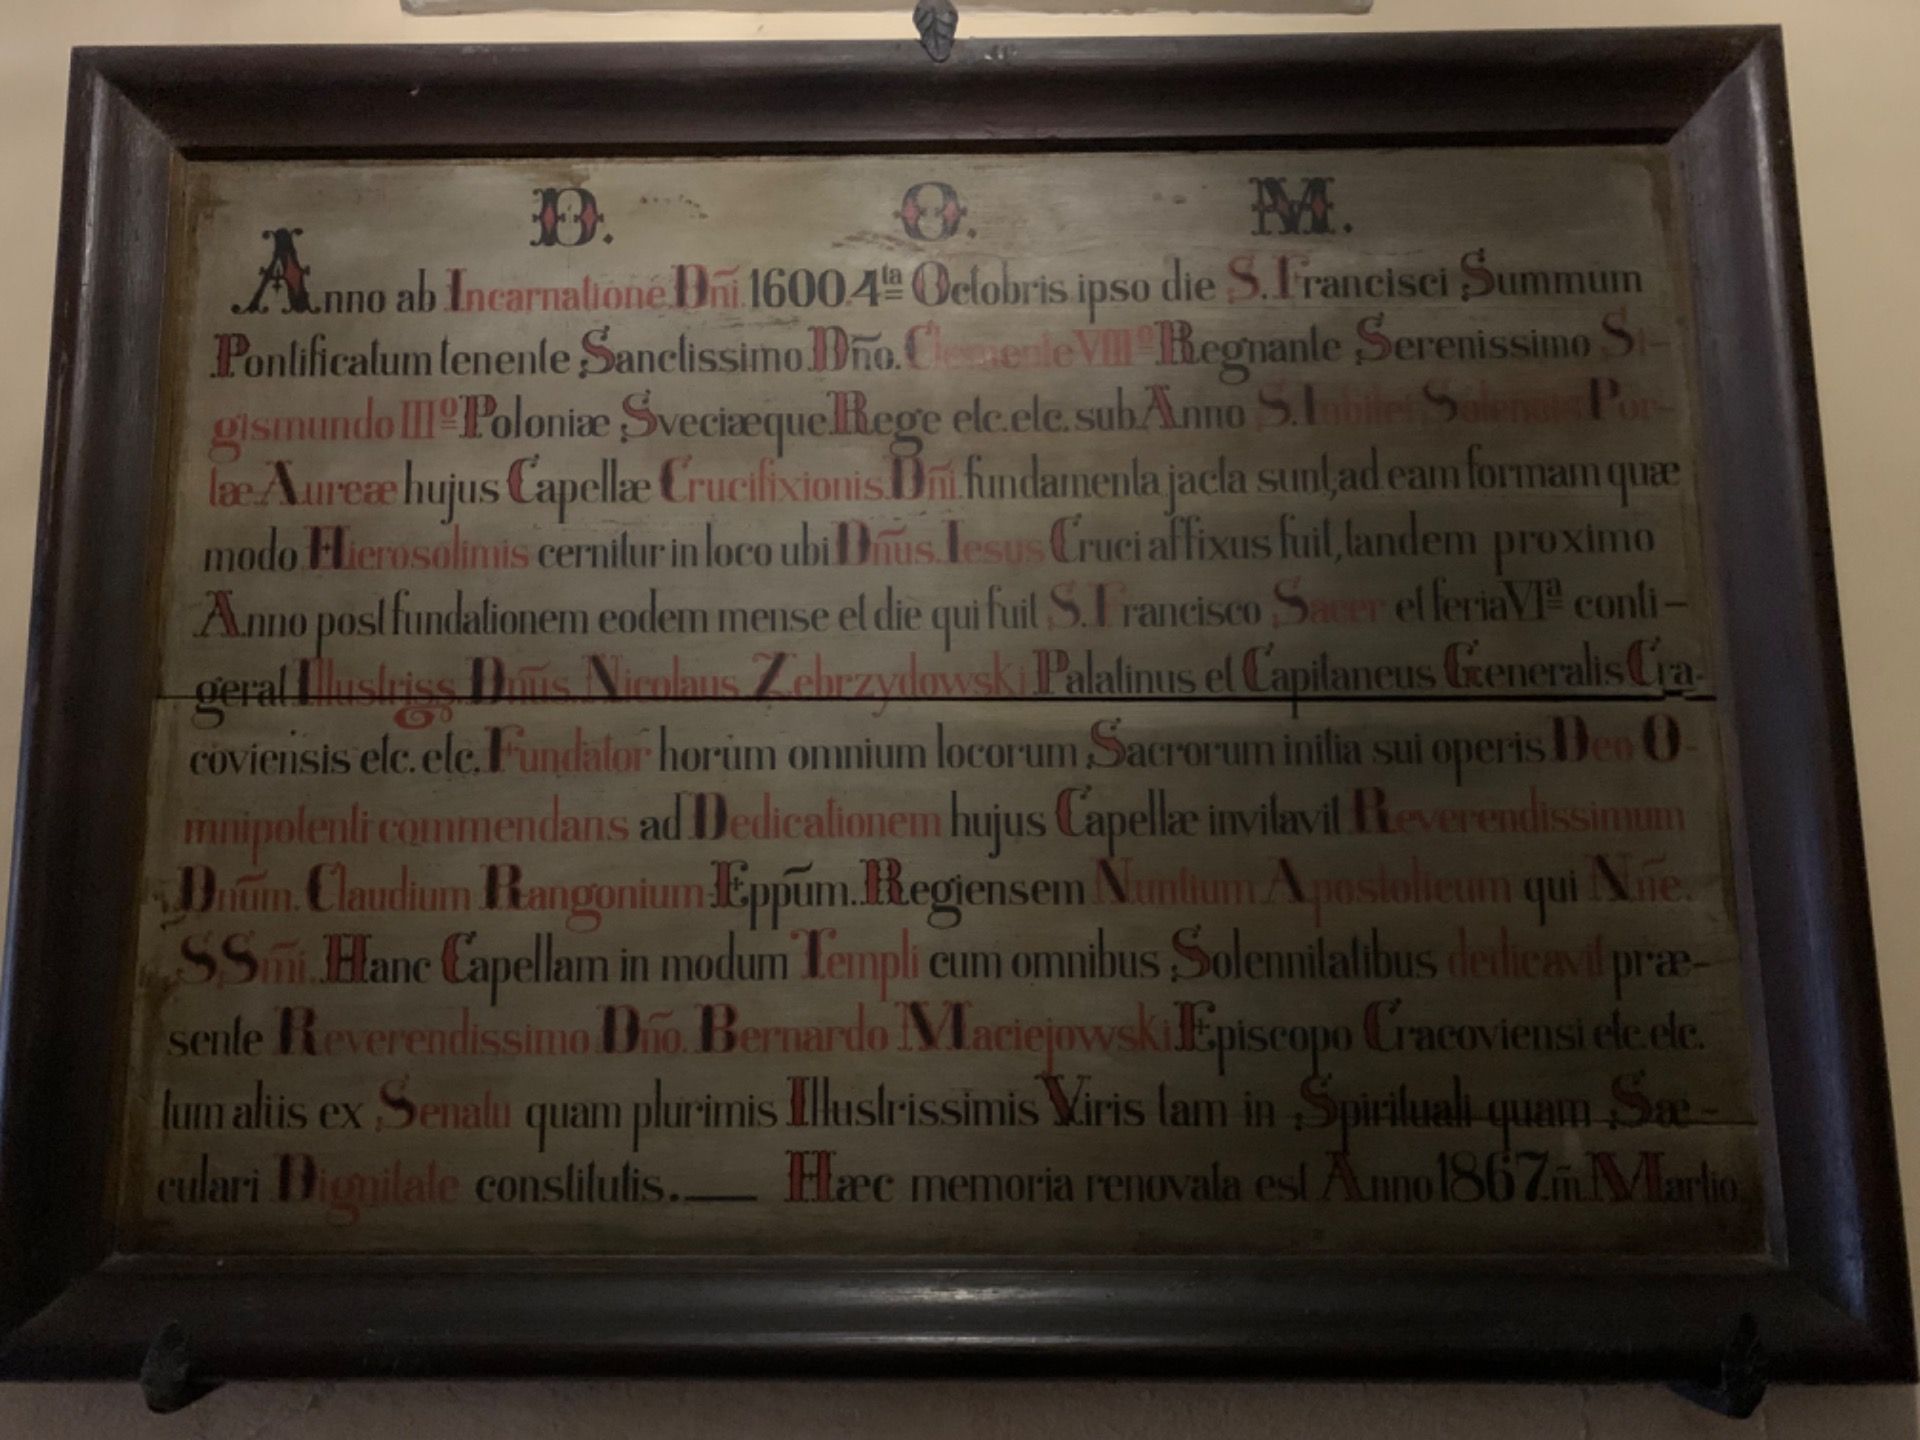 D. O. M.
Anno ab Incarnatione Dñi. 1600. 4ta Octobris ipso die S. Francisci Summum
Pontificatum tenente Sanctissimo Dño. Clemente VIIIº Regnante Serenissimo Si-
gismundo IIIº Poloniæ Sveciæque Rege etc. etc. sub Anno S. Iubilei Solennis Por-
tæ Aureæ hujus Capellæ Crucifixionis Dñi. fundamenta jacta sunt, ad eam formam quæ
modo Hierosolimis cernitur in loco ubi Dñus. Iesus Cruci affixus fuit, tandem proximo
Anno post fundationem eodem mense et die qui fuit S. Francisco Sacer et feria VIª conti-
gerat Illustriss. Dñus. Nicolaus Zebrzydowski Palatinus et Capitaneus Generalis Cra-
coviensis etc. etc. Fundator horum omnium locorum Sacrorum initia sui operis Deo O-
mnipotenti commendans ad Dedicationem hujus Capellæ invitavit Reverendissimum
Dnūm. Claudium Rangonium Eppūm. Regiensem Nuntium Apostolicum qui Nñe.
SSmi. Hanc Capellam in modum Templi cum omnibus Solennitatibus dedicavit præ-
sente Reverendissimo Dño. Bernardo Maciejowski Episcopo Cracoviensi etc. etc.
tum aliis ex Senatu quam plurimis Illustrissimis Viris tam in Spirituali quam Sæ-
culari Dignitate constitutis. — Hæc memoria renovata est Anno 1867. m̃. Martio